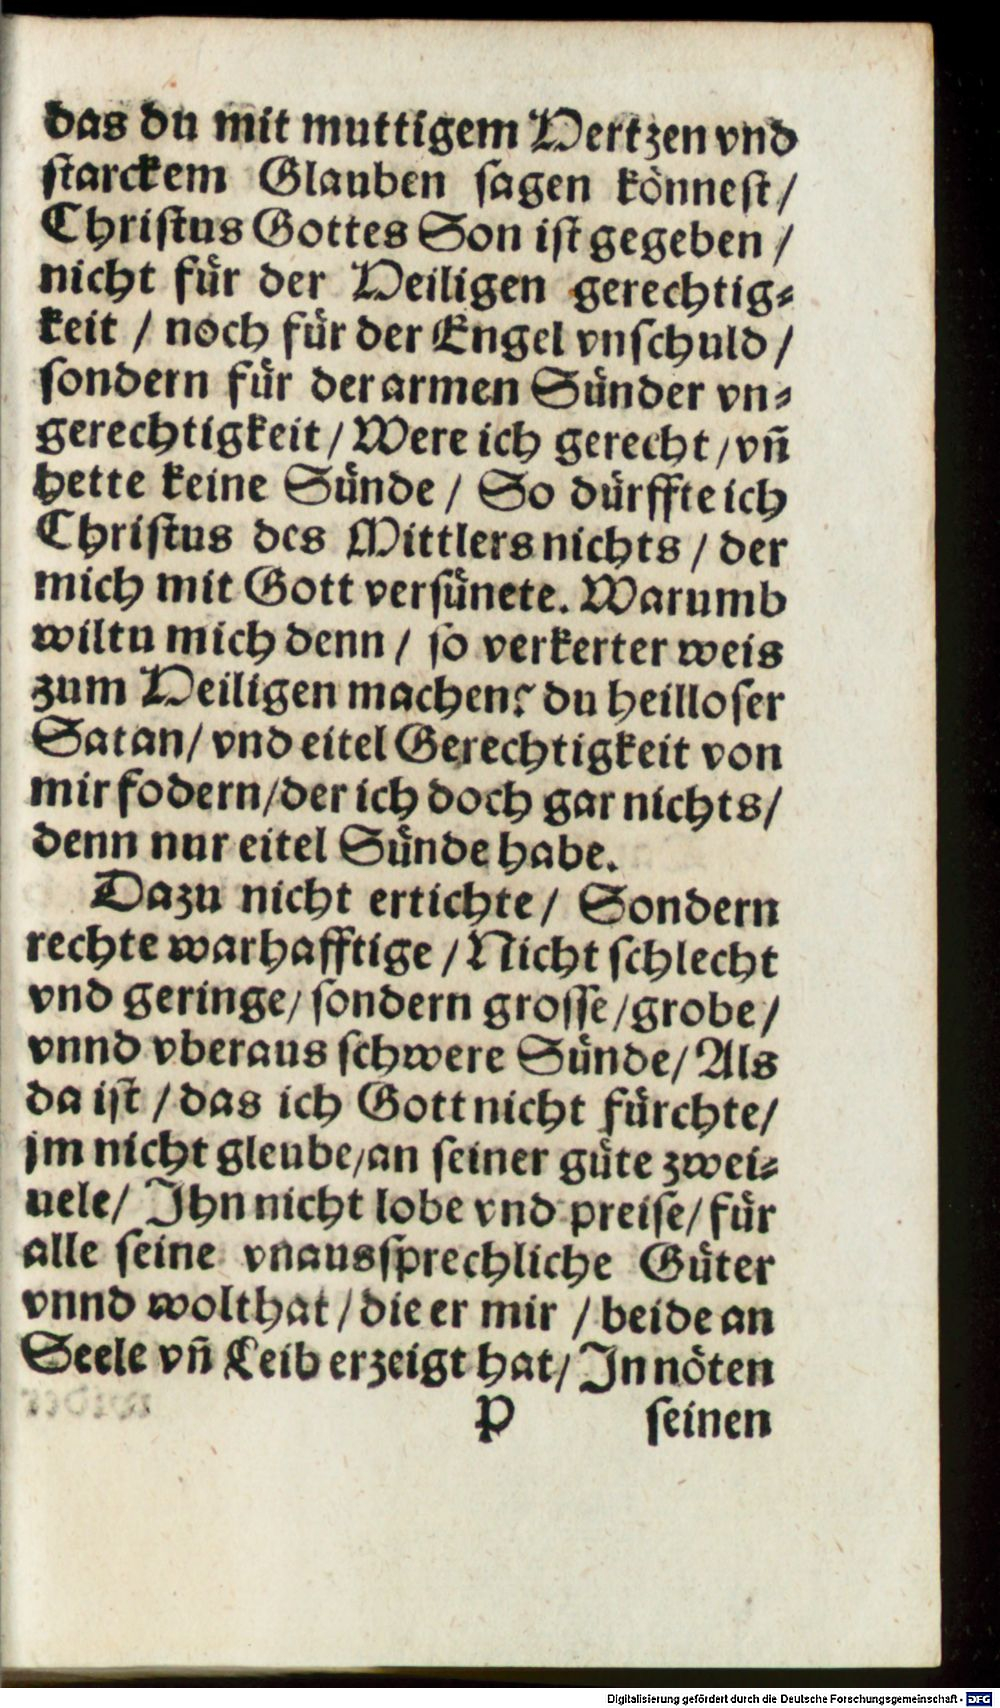 das du mit muttigem Hertzen vnd
starckem Glauben sagen könnest /
Christus Gottes Son ist gegeben /
nicht für der Heiligen gerechtig-
keit / noch für der Engel vnschuld /
sondern für der armen Sünder vn-
gerechtigkeit / Were ich gerecht / vñ
hette keine Sünde / So dürffte ich
Christus des Mittlers nichts / der
mich mit Gott versünete. Warumb
wiltu mich denn / so verkerter weis
zum Heiligen machen? du heilloser
Satan / vnd eitel Gerechtigkeit von
mir fodern / der ich doch gar nichts /
denn nur eitel Sünde habe.
Dazu nicht ertichte / Sondern
rechte warhafftige / Nicht schlecht
vnd geringe / sondern grosse / grobe /
vnnd vberaus schwere Sünde / Als
da ist / das ich Gott nicht fürchte /
jm nicht gleube / an seiner güte zwei-
uele / Ihn nicht lobe vnd preise / für
alle seine vnaussprechliche Güter
vnnd wolthat / die er mir / beide an
Seele vñ Leib erzeigt hat / In nöten
P seinen
Digitalisierung gefördert durch die Deutsche Forschungsgemeinschaft - DFG